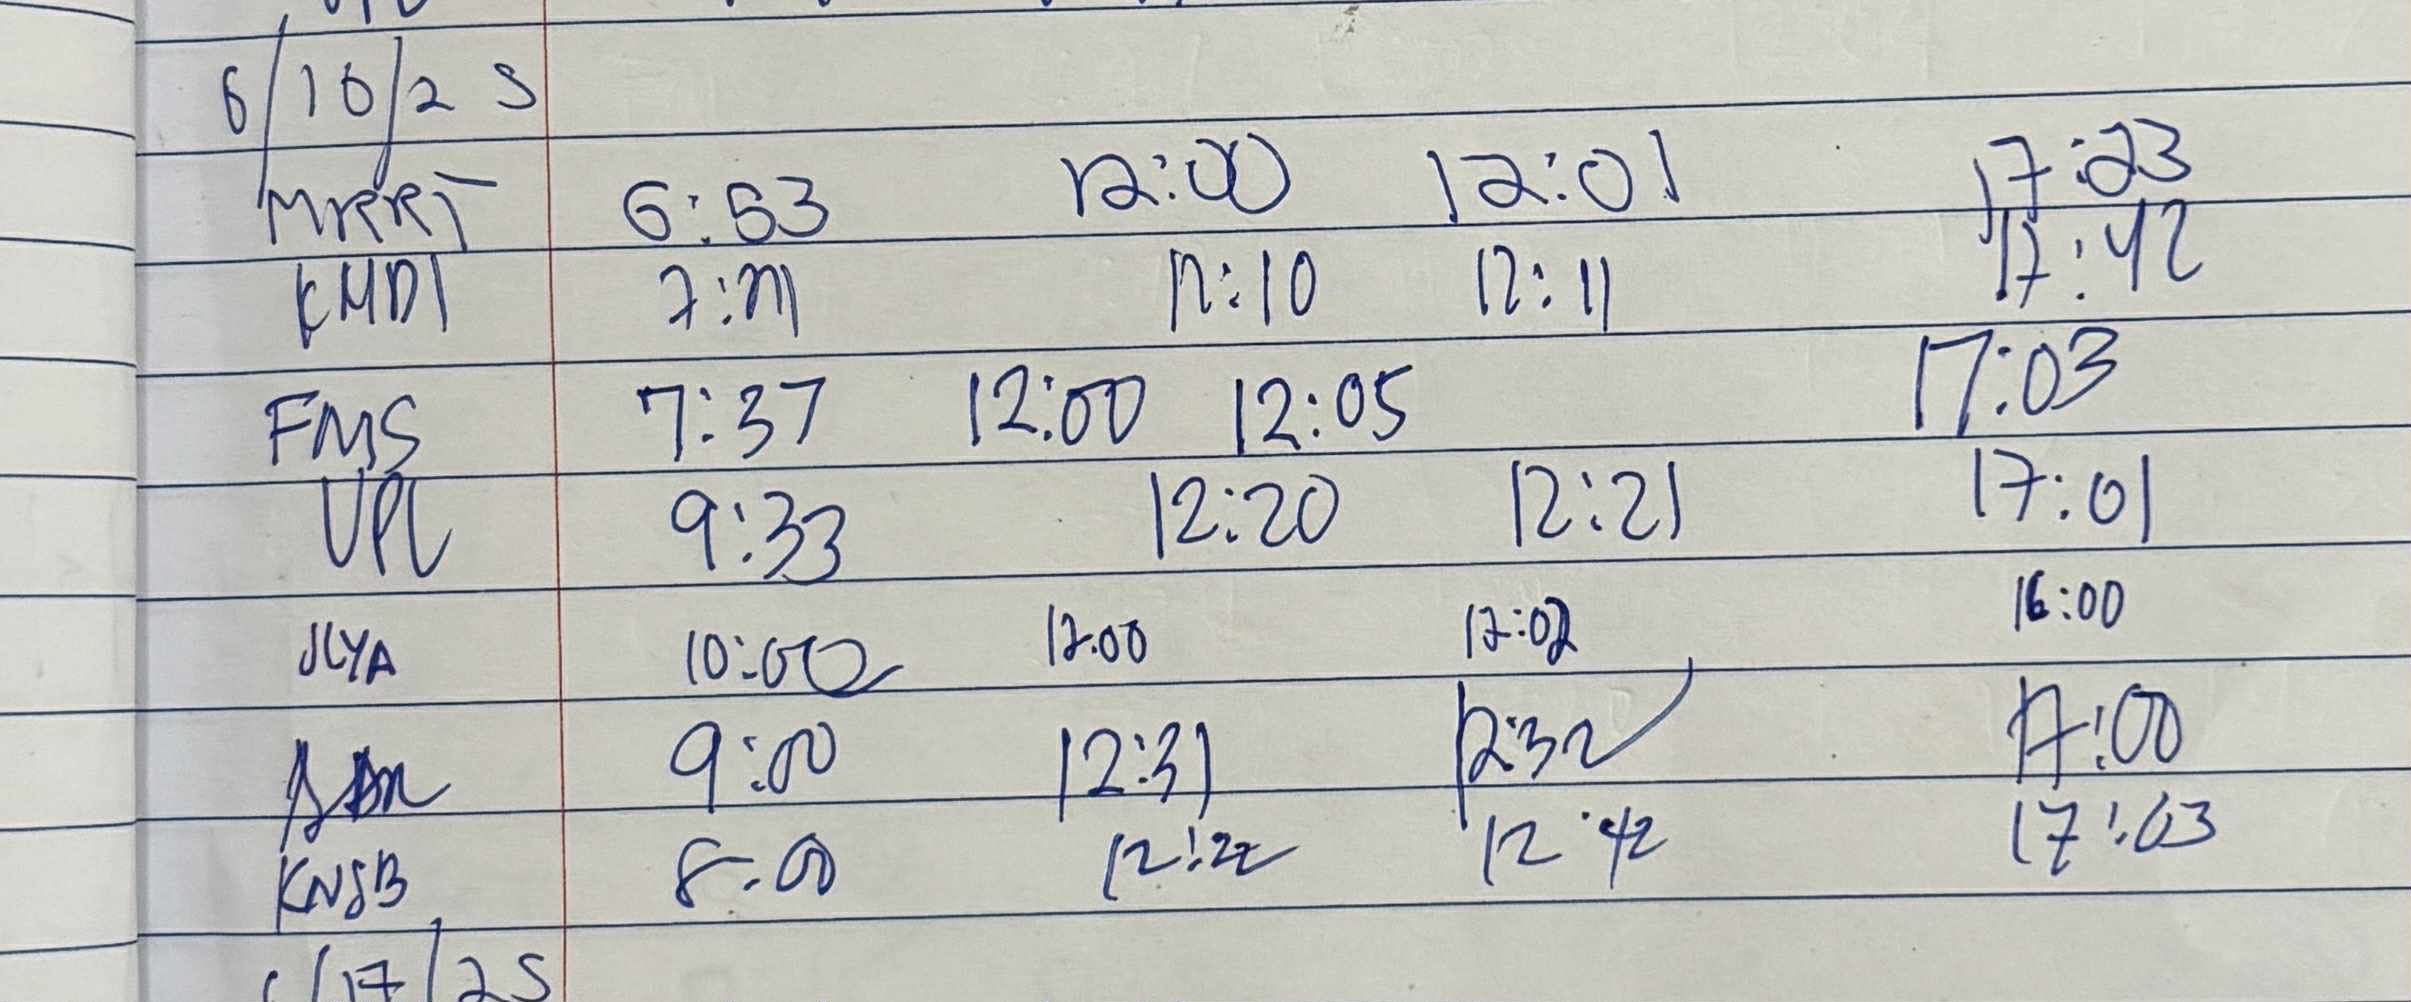 6/16/25
MRRT 6:53 12:00 12:01 17:23
KMDI 7:21 12:10 12:11 17:42
FMS 7:37 12:00 12:05 17:03
UPL 9:33 12:20 12:21 17:01
JLYA 10:00 12:00 12:02 16:00
9:00 12:31 12:32 17:00
KNSB 8:00 12:22 12:42 17:03
6/17/25